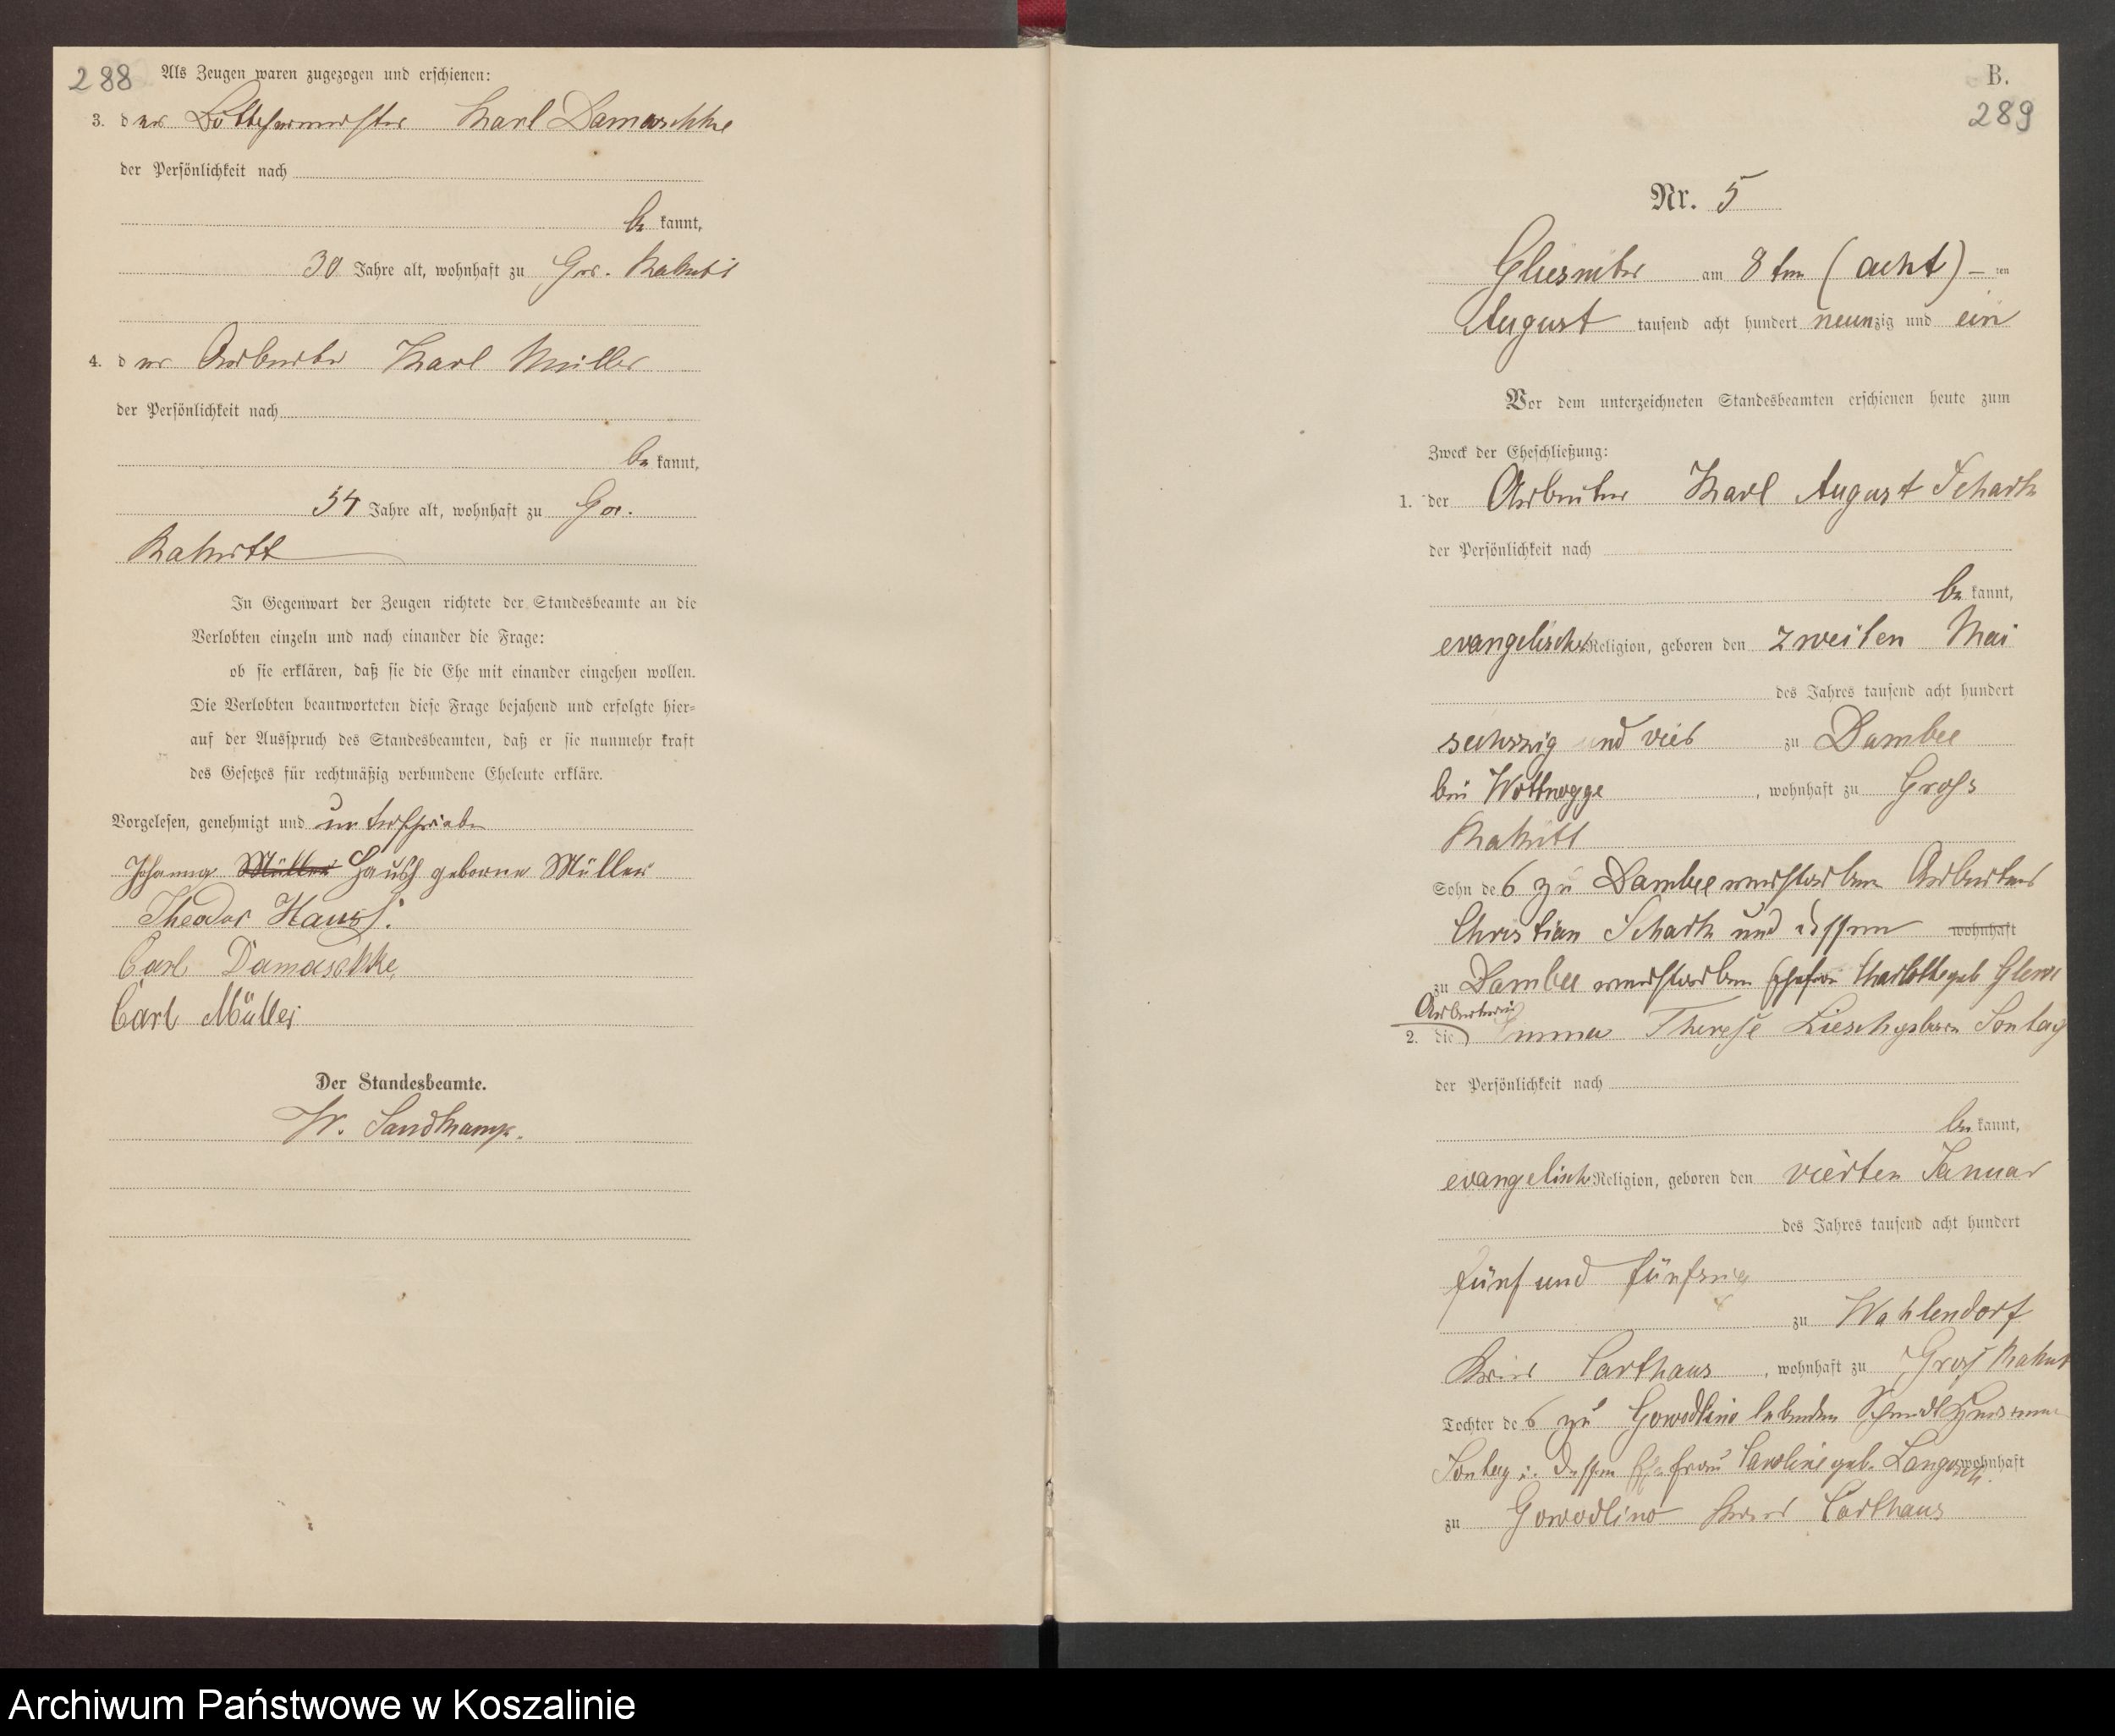 288
Als Zeugen waren zugezogen und erschienen:
3. der Böttchermeister Karl Damaschke
der Persönlichkeit nach
be kannt,
30 Jahre alt, wohnhaft zu Gr. Rakitt
4. der Arbeiter Karl Müller
der Persönlichkeit nach
be kannt,
54 Jahre alt, wohnhaft zu Gr.
Rakitt
In Gegenwart der Zeugen richtete der Standesbeamte an die
Verlobten einzeln und nach einander die Frage:
ob sie erklären, daß sie die Ehe mit einander eingehen wollen.
Die Verlobten beantworteten diese Frage bejahend und erfolgte hier-
auf der Ausspruch des Standesbeamten, daß er sie nunmehr kraft
des Gesetzes für rechtmäßig verbundene Eheleute erkläre.
Vorgelesen, genehmigt und unterschrieben
Johanna Müller geborne Müller
Theodor
Carl Damaschke
Carl Müller
Der Standesbeamte.
W. Sandkamp.
B.
289
Nr. 5
am 8ten (acht) – ten
August tausend acht hundert neunzig und ein
Vor dem unterzeichneten Standesbeamten erschienen heute zum
Zweck der Eheschließung:
1. der Arbeiter Karl August
der Persönlichkeit nach
be kannt,
evangelischer Religion, geboren den zweiten Mai
des Jahres tausend acht hundert
sechszig und vier zu Dambee
bei Wottnogge, wohnhaft zu Gross
Rakitt
Sohn des zu Dambee verstorbenen Arbeiters
Christian und dessen wohnhaft
zu Dambee verstorbenen Ehefrau Charlotte geb
Arbeiterin
2. die Emma Therese geboren Sontag
der Persönlichkeit nach
be kannt,
evangelischer Religion, geboren den vierten Januar
des Jahres tausend acht hundert
fünf und fünfzig
zu Wahlendorf
Kreis Carthaus, wohnhaft zu Gross Rakitt
Tochter des zu Gowidlino lebenden
Sontag u. dessen Ehefrau Caroline geb. wohnhaft
zu Gowidlino Kreis Carthaus
Archiwum Państwowe w Koszalinie